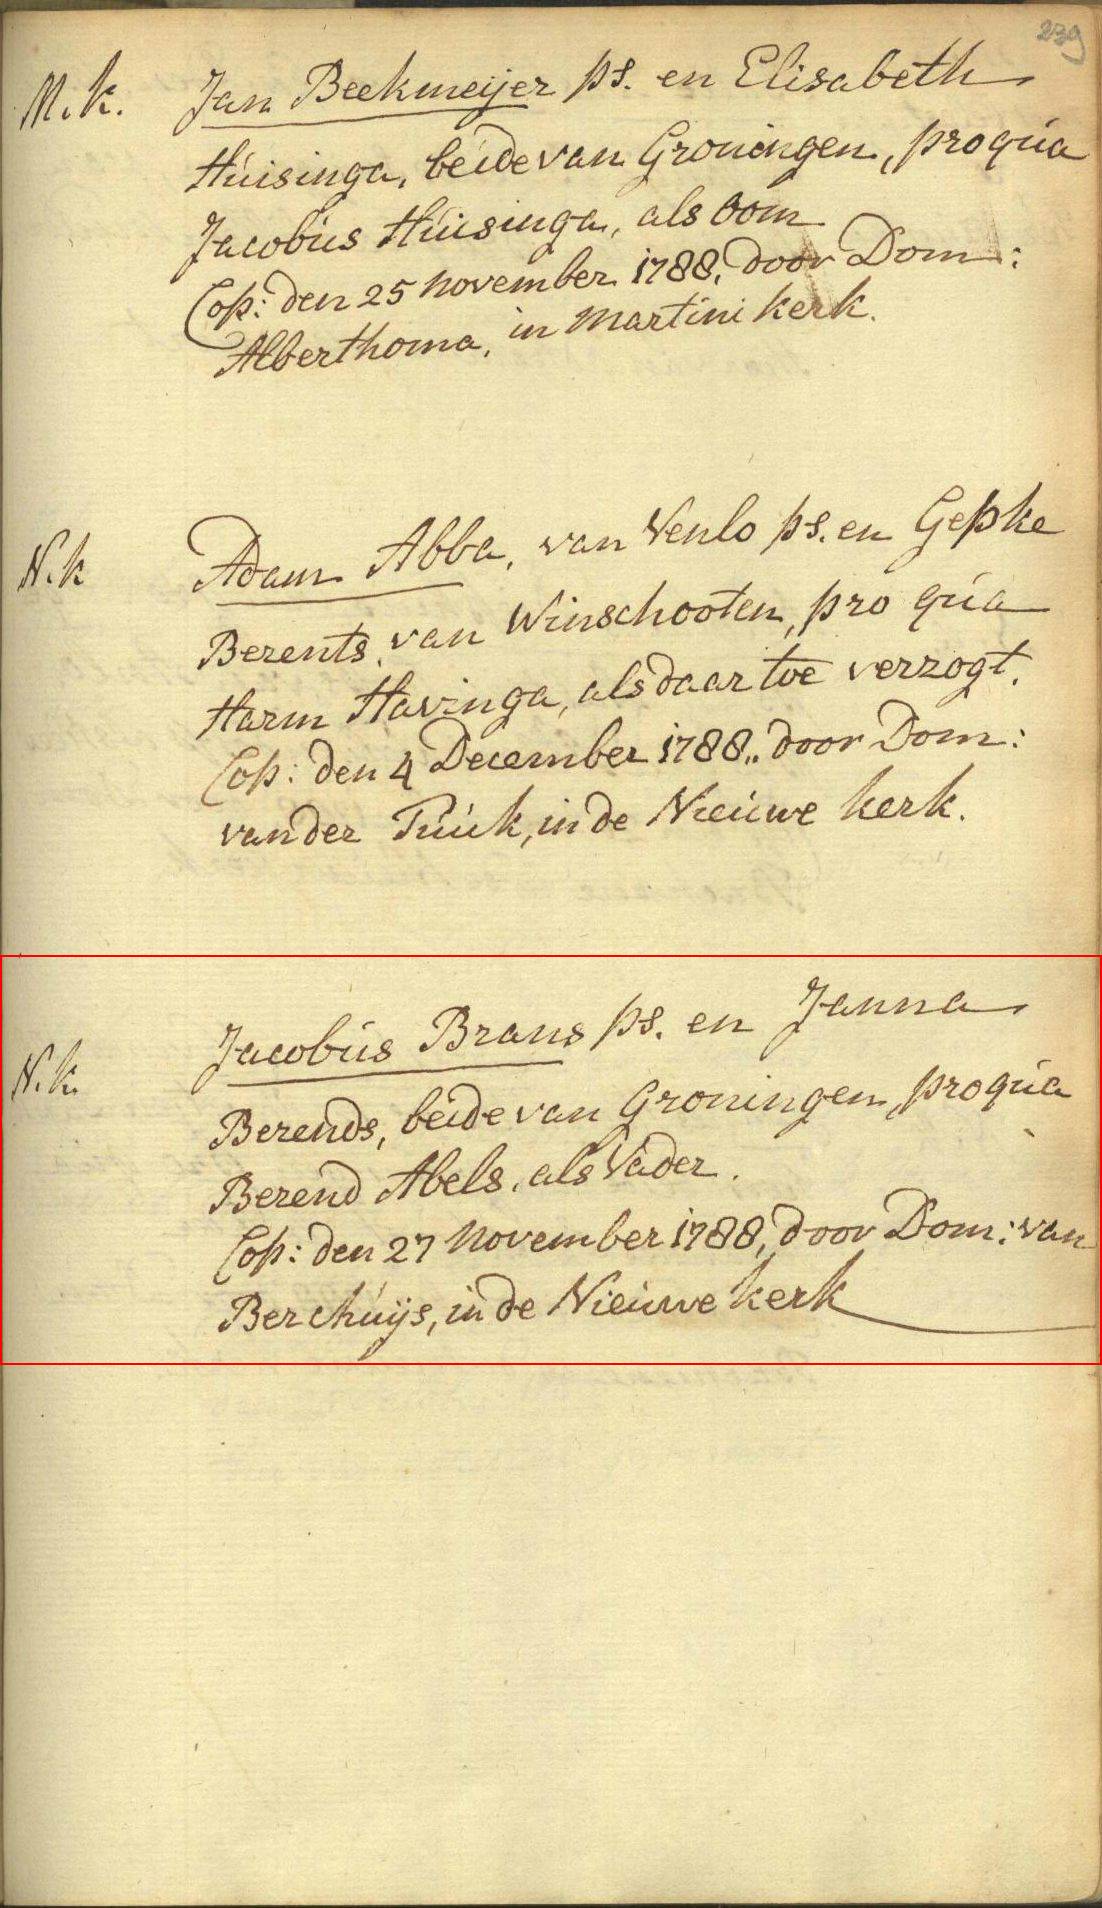 239
M.k. Jan Beekmeijer ps. en Elisabeth
Húisinga, beide van Groningen, pro qúa
Jacobús Húisinga, als oom
Cop: den 25 November 1788, door Dom:
Alberthoma, in Martini kerk.
N.k Adam Abba, van Venlo ps. en Gepke
Berents, van Winschooten, pro qúa
Harm Havinga, als daar toe verzogt.
Cop: den 4 December 1788,, door Dom:
van der Túúk, in de Nieúwe kerk.
N.k. Jacobús Brans ps. en Janna
Berends, beide van Groningen, pro qúa
Berend Abels, als Vader.
Cop: den 27 November 1788, door Dom: van
Berchúijs, in de Nieúwe kerk